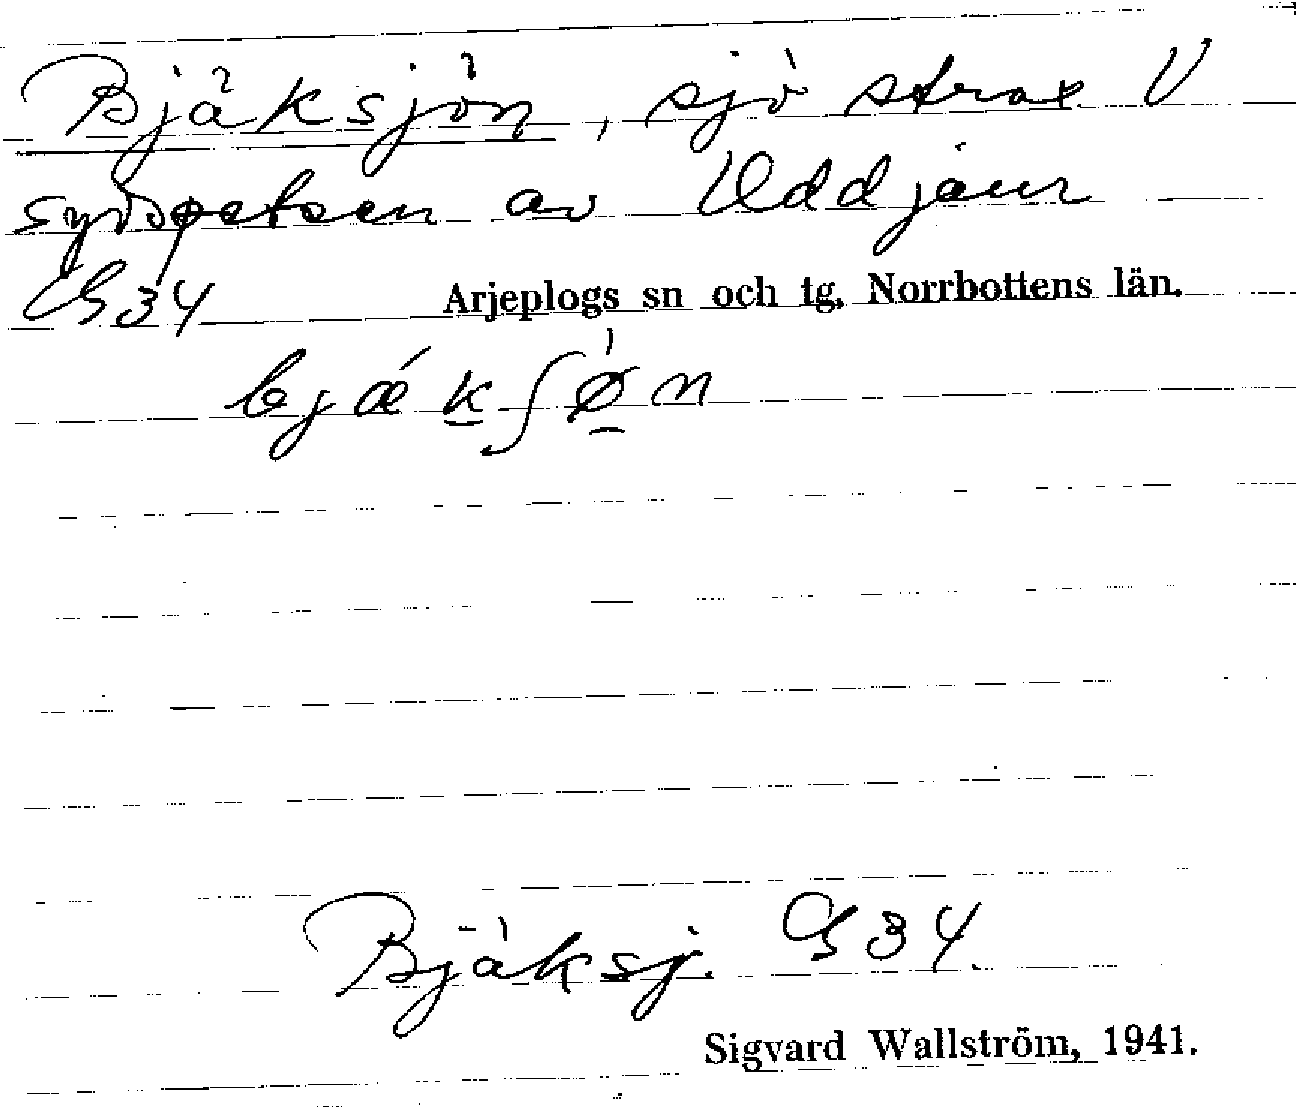 Bjäksjön, sjö strax V
sydspetsen av Uddjaur
G34
Arjeplogs sn och tg, Norrbottens län.
bjǽkʃø̀n
Bjäksj. G34.
Sigvard Wallström, 1941.